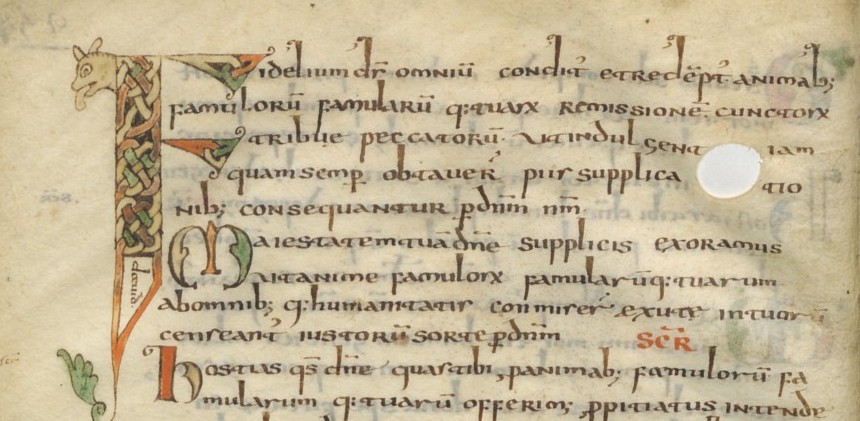 Fidelium dr̄ omniū condit᷒ et redēpt᷒ animab;
famulorū famularū q: tuarx remissionē. cunctorx
tribue peccatorū. Ut indulgent iam
quam semp̄ obtauer̄ piis supplica tio
nib; consequantur. p dnm̄ nm̄
Maiestatem tuā dn̄e supplicis exoramus
ut anime famulorx famularūq: tuarum
ab omnib; q: humanitatis conmiser̄ exute in tuorū
censeant᷒ iustorū sorte p dnm̄ SCR̄
david.
hostias qs̄ dn̄e quas tibi, p animab; famulorū fa
mularum q: tuarū offerim; ppitiatus intende